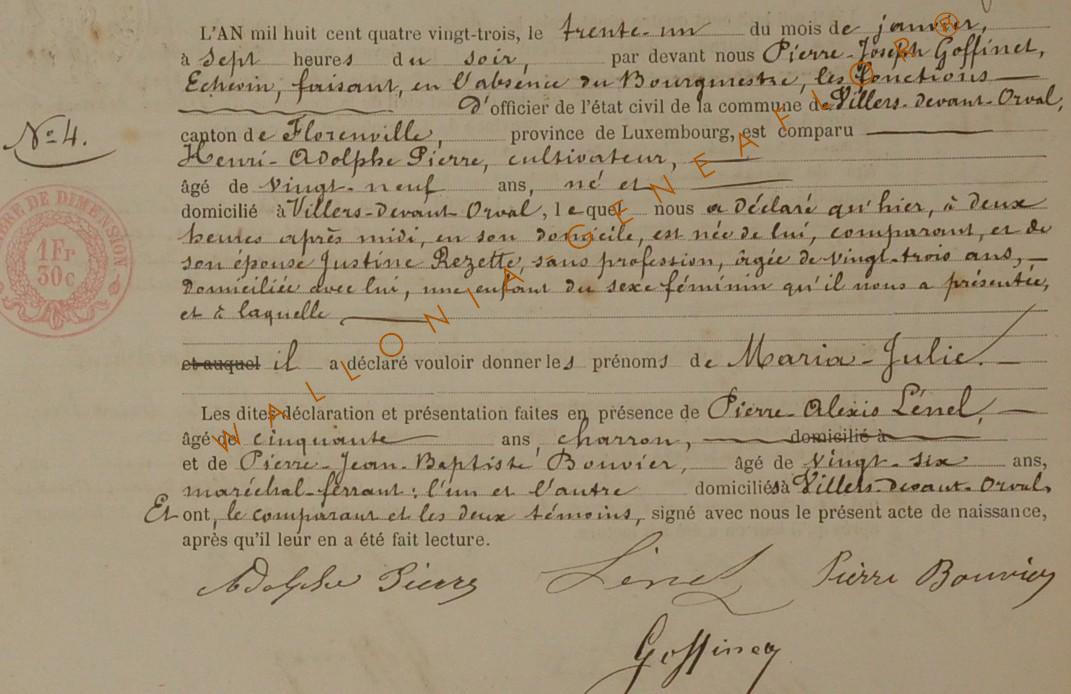 L'AN mil huit cent quatre vingt-trois, le trente-un du mois de janvier,
à sept heures du soir, par devant nous Pierre-Joseph Goffinet,
Echevin, faisant, en l'absence du Bourgmestre, les fonctions
D'officier de l'état civil de la commune de Villers-devant-Orval,
N° 4.
canton de Florenville, province de Luxembourg, est comparu
Henri-Adolphe Pierre, cultivateur,
âgé de vingt-neuf ans, né et
domicilié à Villers-Devant-Orval, lequel nous a déclaré qu'hier, à deux
heures après midi, en son domicile, est née de lui, comparant, et de
son épouse Justine Rezette, sans profession, âgée de vingt-trois ans,
domiciliée avec lui, une enfant du sexe féminin qu'il nous a présentée,
et à laquelle
et auquel il a déclaré vouloir donner les prénoms de Maria-Julie.
Les dites déclaration et présentation faites en présence de Pierre-Alexis Lénel,
âgé de cinquante ans, charron, domicilié à
et de Pierre-Jean-Baptiste Bouvier, âgé de vingt-six ans,
maréchal-ferrant; l'un et l'autre domiciliés à Villers-devant-Orval,
Et ont, le comparant et les deux témoins, signé avec nous le présent acte de naissance,
après qu'il leur en a été fait lecture.
Adolphe Pierre Lénel Pierre Bouvier
Goffinet
TIMBRE DE DIMENSION
1 Fr
30c
WALLONIA-GENEAFLOR®